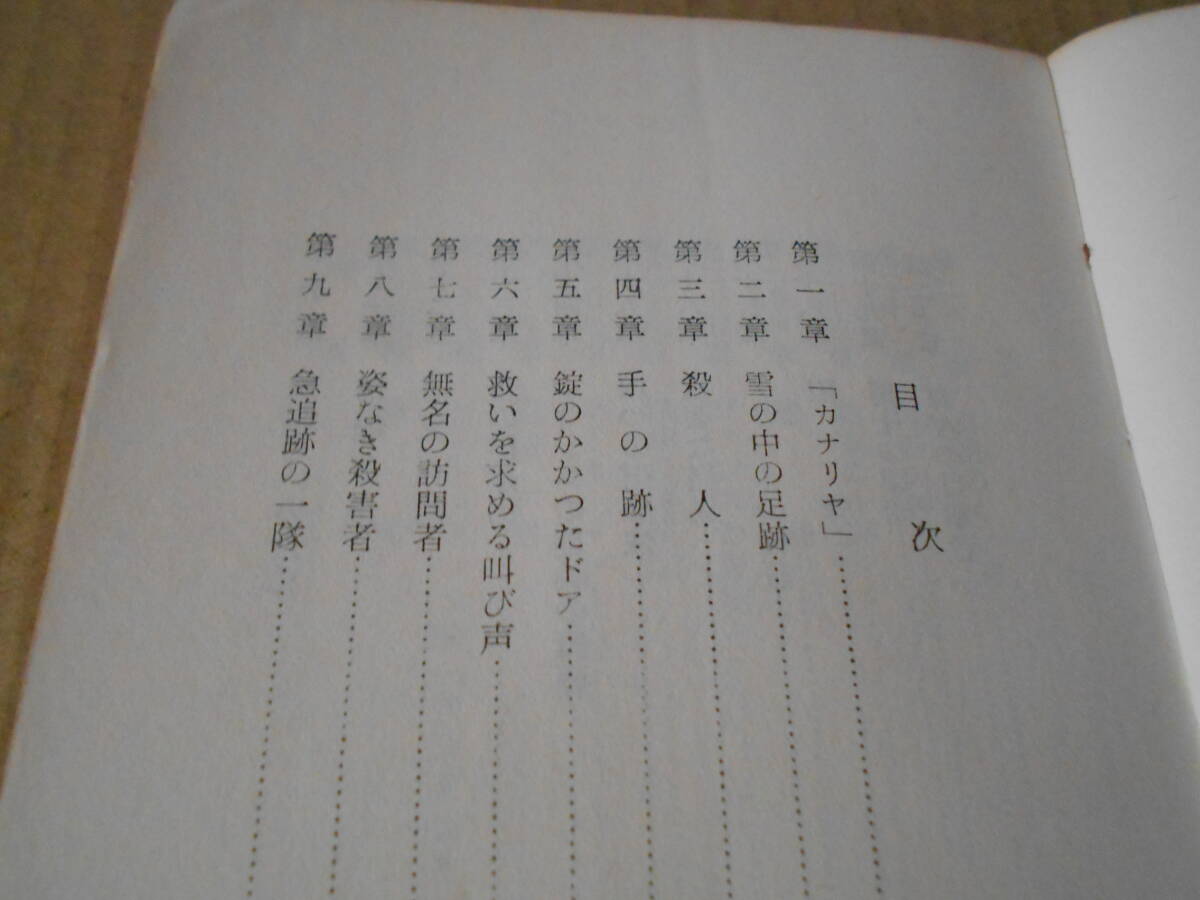 目次
第一章 「カナリヤ」…………
第二章 雪の中の足跡…………
第三章 殺人…………
第四章 手の跡…………
第五章 錠のかかつたドア…………
第六章 救いを求める叫び声…………
第七章 無名の訪問者…………
第八章 姿なき殺害者…………
第九章 急追跡の一隊…………